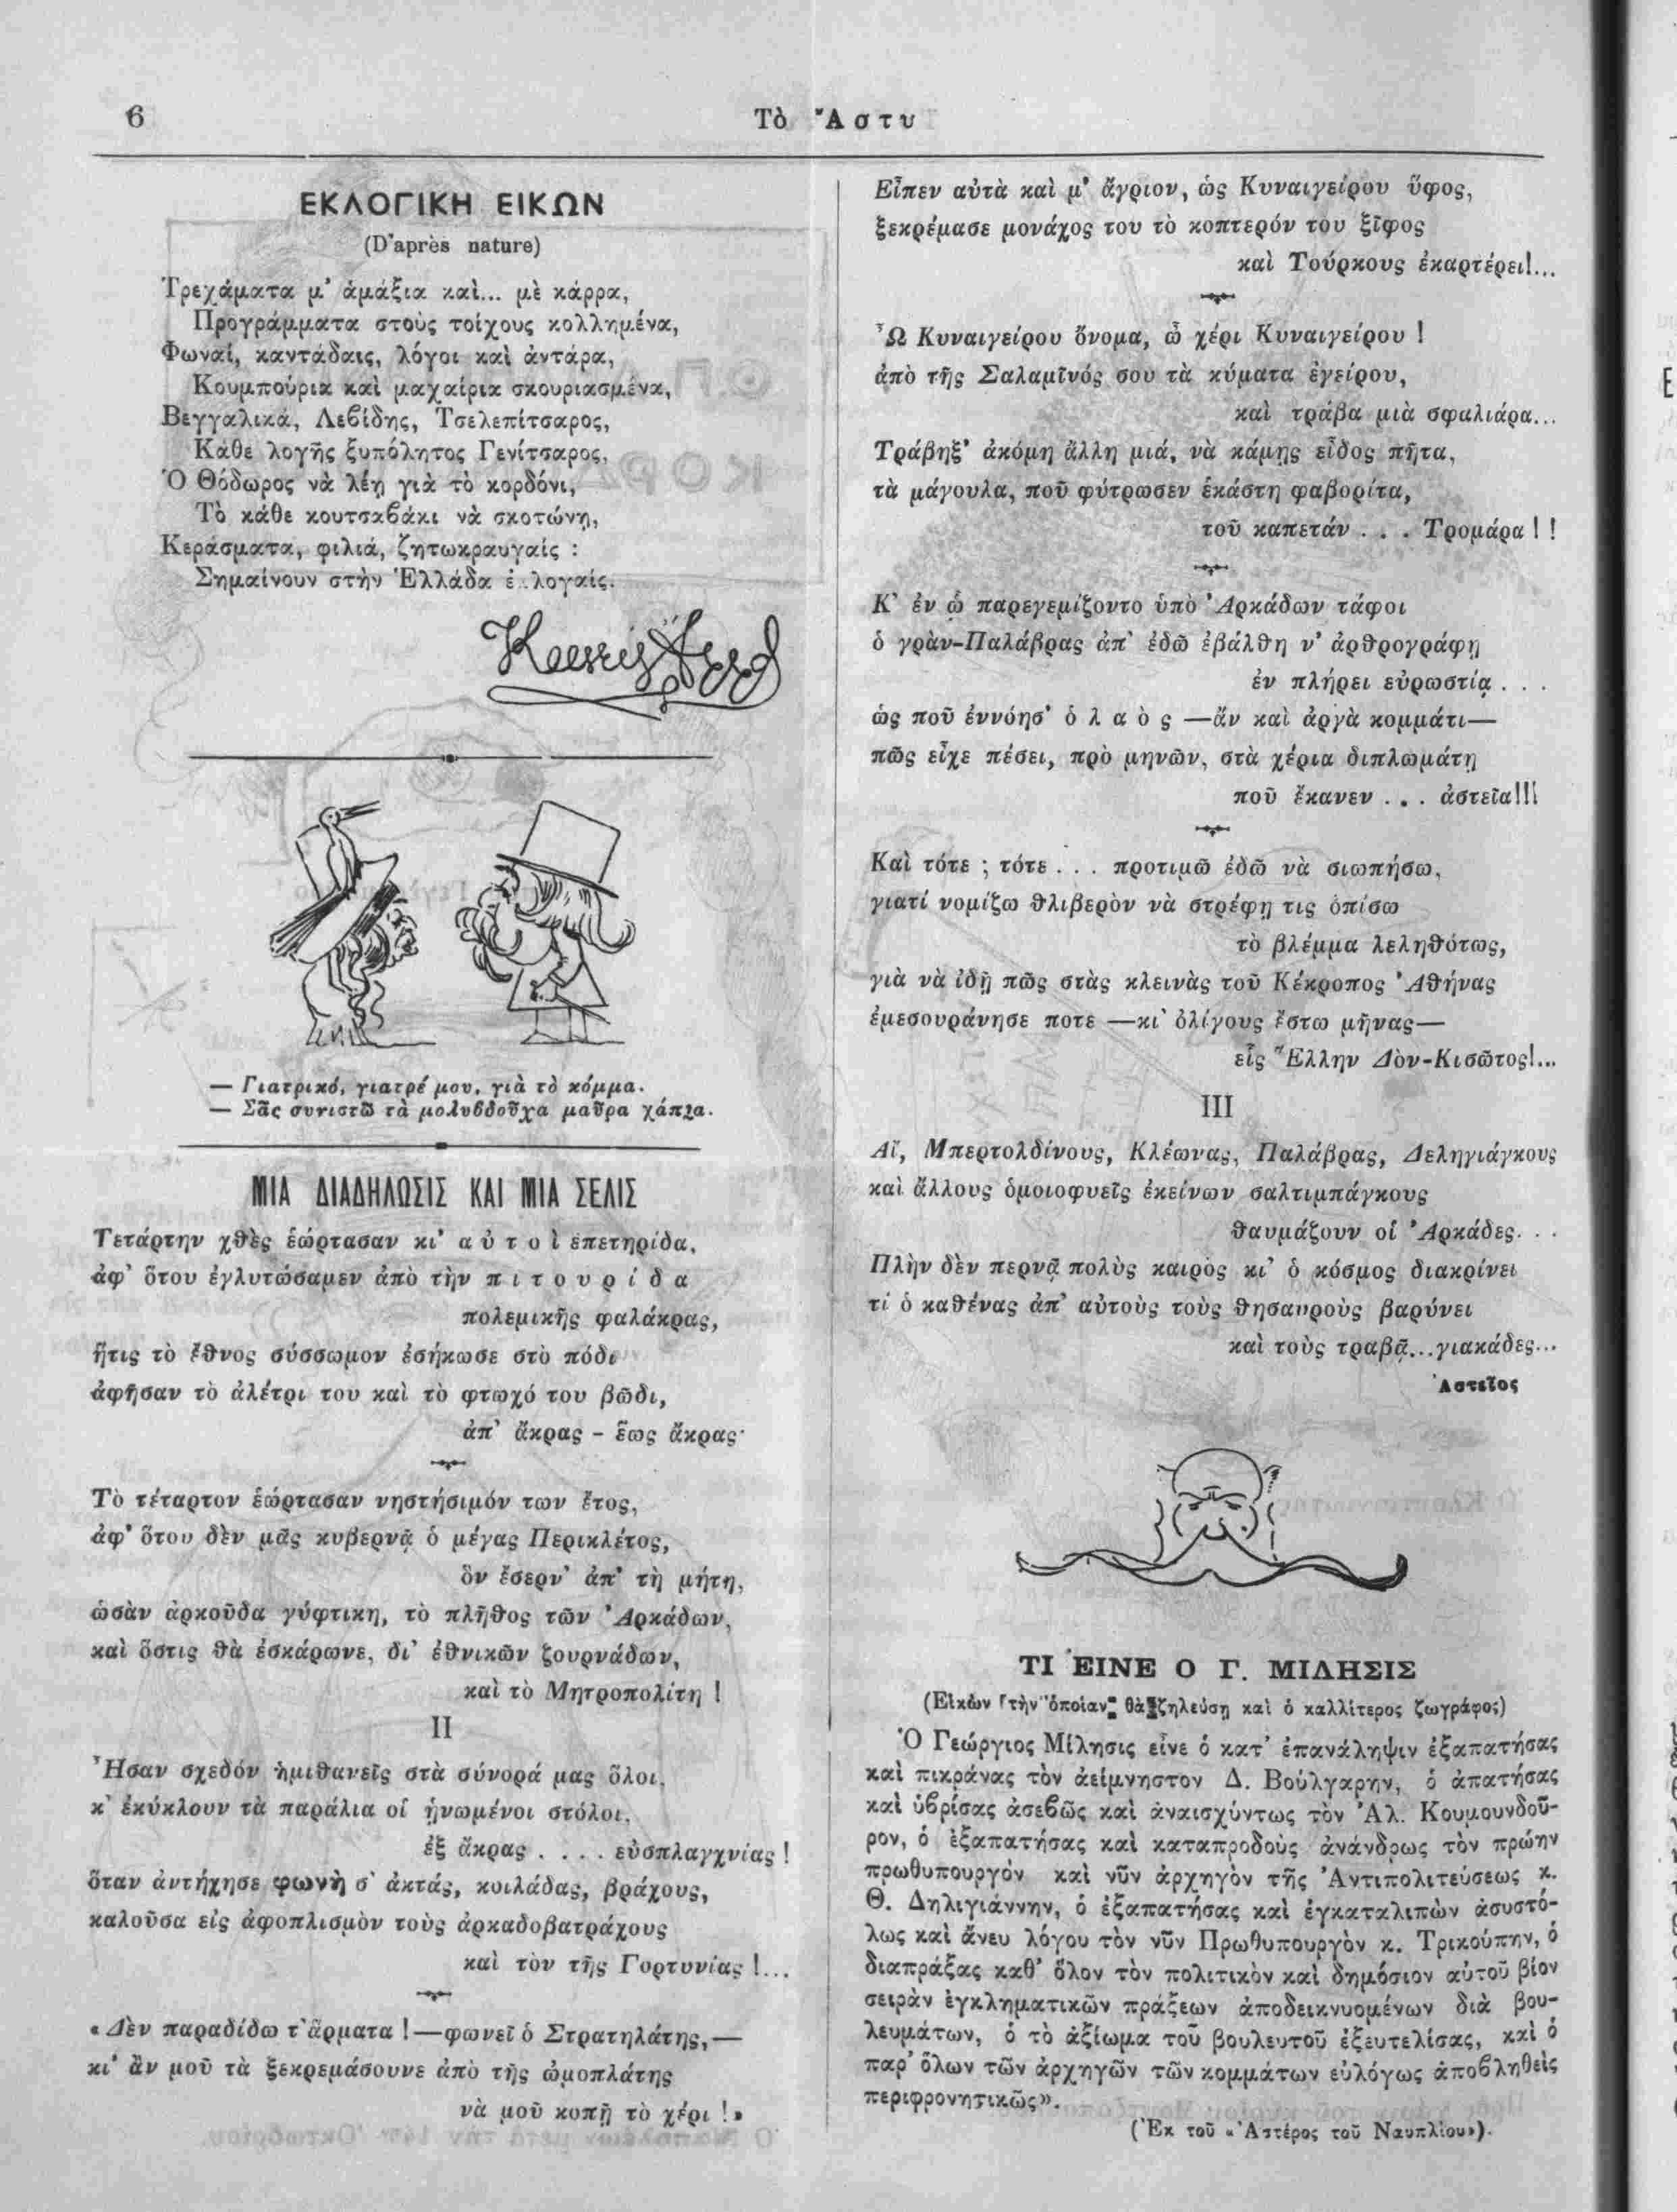 6
Τὸ Ἄστυ
ΕΚΛΟΓΙΚΗ ΕΙΚΩΝ
(D'après nature)
Τρεχάματα μ' ἁμάξια καὶ... μὲ κάρρα,
Προγράμματα στοὺς τοίχους κολλημένα,
Φωναί, καντάδαις, λόγοι καὶ ἀντάρα,
Κουμπούρια καὶ μαχαίρια σκουριασμένα,
Βεγγαλικά, Λεβίδης, Τσελεπίτσαρος,
Κάθε λογῆς ξυπόλητος Γενίτσαρος,
Ὁ Θόδωρος νὰ λέῃ γιὰ τὸ κορδόνι,
Τὸ κάθε κουτσαβάκι νὰ σκοτώνῃ,
Κεράσματα, φιλιά, ζητωκραυγαίς :
Σημαίνουν στὴν Ἑλλάδα ἐ..λογαίς.
— Γιατρικό, γιατρέ μου, γιὰ τὸ κόμμα.
— Σᾶς συνιστῶ τὰ μολυβδοῦχα μαῦρα χάπια.
ΜΙΑ ΔΙΑΔΗΛΩΣΙΣ ΚΑΙ ΜΙΑ ΣΕΛΙΣ
Τετάρτην χθὲς ἑώρτασαν κι' α ὐ τ ο ὶ ἐπετηρίδα,
ἀφ' ὅτου ἐγλυτώσαμεν ἀπὸ τὴν π ι τ ο υ ρ ί δ α
πολεμικῆς φαλάκρας,
ἥτις τὸ ἔθνος σύσσωμον ἐσήκωσε στὸ πόδι
ἀφῆσαν τὸ ἀλέτρι του καὶ τὸ φτωχό του βῶδι,
ἀπ' ἄκρας - ἕως ἄκρας·
Τὸ τέταρτον ἑώρτασαν νηστήσιμόν των ἔτος,
ἀφ' ὅτου δὲν μᾶς κυβερνᾷ ὁ μέγας Περικλέτος,
ὃν ἔσερν' ἀπ' τὴ μήτη,
ὡσὰν ἀρκοῦδα γύφτικη, τὸ πλῆθος τῶν Ἀρκάδων,
καὶ ὅστις θὰ ἐσκάρωνε, δι' ἐθνικῶν ζουρνάδων,
καὶ τὸ Μητροπολίτη !
II
Ἦσαν σχεδόν ἡμιθανεῖς στὰ σύνορά μας ὅλοι,
κ' ἐκύκλουν τὰ παράλια οἱ ἡνωμένοι στόλοι,
ἐξ ἄκρας . . . . εὐσπλαγχνίας !
ὅταν ἀντήχησε φωνὴ σ' ἀκτάς, κοιλάδας, βράχους,
καλοῦσα εἰς ἀφοπλισμὸν τοὺς ἀρκαδοβατράχους
καὶ τὸν τῆς Γορτυνίας !...
«Δὲν παραδίδω τ' ἅρματα !—φωνεῖ ὁ Στρατηλάτης,—
κι' ἂν μοῦ τὰ ξεκρεμάσουνε ἀπὸ τῆς ὠμοπλάτης
νὰ μοῦ κοπῇ τὸ χέρι !»
Εἶπεν αὐτὰ καὶ μ' ἄγριον, ὡς Κυναιγείρου ὕφος,
ξεκρέμασε μονάχος του τὸ κοπτερόν του ξῖφος
καὶ Τούρκους ἐκαρτέρει!...
Ὦ Κυναιγείρου ὄνομα, ὦ χέρι Κυναιγείρου !
ἀπὸ τῆς Σαλαμῖνός σου τὰ κύματα ἐγείρου,
καὶ τράβα μιὰ σφαλιάρα...
Τράβηξ' ἀκόμη ἄλλη μιά, νὰ κάμῃς εἶδος πῆτα,
τὰ μάγουλα, ποῦ φύτρωσεν ἑκάστη φαβορίτα,
τοῦ καπετάν . . . Τρομάρα ! !
Κ' ἐν ᾧ παρεγεμίζοντο ὑπὸ Ἀρκάδων τάφοι
ὁ γρὰν-Παλάβρας ἀπ' ἐδῶ ἐβάλθη ν' ἀρθρογράφῃ
ἐν πλήρει εὐρωστίᾳ . . .
ὡς ποῦ ἐννόησ' ὁ λ α ὸ ς —ἄν καὶ ἀργὰ κομμάτι—
πῶς εἶχε πέσει, πρὸ μηνῶν, στὰ χέρια διπλωμάτη
ποῦ ἔκανεν . . . ἀστεῖα!!!
Καὶ τότε ; τότε . . . προτιμῶ ἐδῶ νὰ σιωπήσω,
γιατί νομίζω θλιβερὸν νὰ στρέφῃ τις ὀπίσω
τὸ βλέμμα λεληθότως,
γιὰ νὰ ἰδῇ πῶς στὰς κλεινὰς τοῦ Κέκροπος Ἀθήνας
ἐμεσουράνησε ποτε —κι' ὀλίγους ἔστω μῆνας—
εἷς Ἕλλην Δὸν-Κισῶτος!...
III
Αἴ, Μπερτολδίνους, Κλέωνας, Παλάβρας, Δεληγιάγκους
καὶ ἄλλους ὁμοιοφυεῖς ἐκείνων σαλτιμπάγκους
θαυμάζουν οἱ Ἀρκάδες. . .
Πλὴν δὲν περνᾷ πολὺς καιρὸς κι' ὁ κόσμος διακρίνει
τί ὁ καθένας ἀπ' αὐτοὺς τοὺς θησαυροὺς βαρύνει
καὶ τοὺς τραβᾷ...γιακάδες...
Ἀστεῖος
ΤΙ ΕΙΝΕ Ο Γ. ΜΙΛΗΣΙΣ
(Εἰκὼν τὴν ὁποίαν θὰ ζηλεύσῃ καὶ ὁ καλλίτερος ζωγράφος)
Ὁ Γεώργιος Μίλησις εἶνε ὁ κατ' ἐπανάληψιν ἐξαπατήσας
καὶ πικράνας τὸν ἀείμνηστον Δ. Βούλγαρην, ὁ ἀπατήσας
καὶ ὑβρίσας ἀσεβῶς καὶ ἀναισχύντως τὸν Ἀλ. Κουμουνδοῦ-
ρον, ὁ ἐξαπατήσας καὶ καταπροδοὺς ἀνάνδρως τὸν πρώην
πρωθυπουργὸν καὶ νῦν ἀρχηγὸν τῆς Ἀντιπολιτεύσεως κ.
Θ. Δηλιγιάννην, ὁ ἐξαπατήσας καὶ ἐγκαταλιπὼν ἀσυστό-
λως καὶ ἄνευ λόγου τὸν νῦν Πρωθυπουργὸν κ. Τρικούπην, ὁ
διαπράξας καθ' ὅλον τὸν πολιτικὸν καὶ δημόσιον αὐτοῦ βίον
σειρὰν ἐγκληματικῶν πράξεων ἀποδεικνυομένων διὰ βου-
λευμάτων, ὁ τὸ ἀξίωμα τοῦ βουλευτοῦ ἐξευτελίσας, καὶ ὁ
παρ' ὅλων τῶν ἀρχηγῶν τῶν κομμάτων εὐλόγως ἀποβληθεὶς
περιφρονητικῶς».
(Ἐκ τοῦ «Ἀστέρος τοῦ Ναυπλίου»).